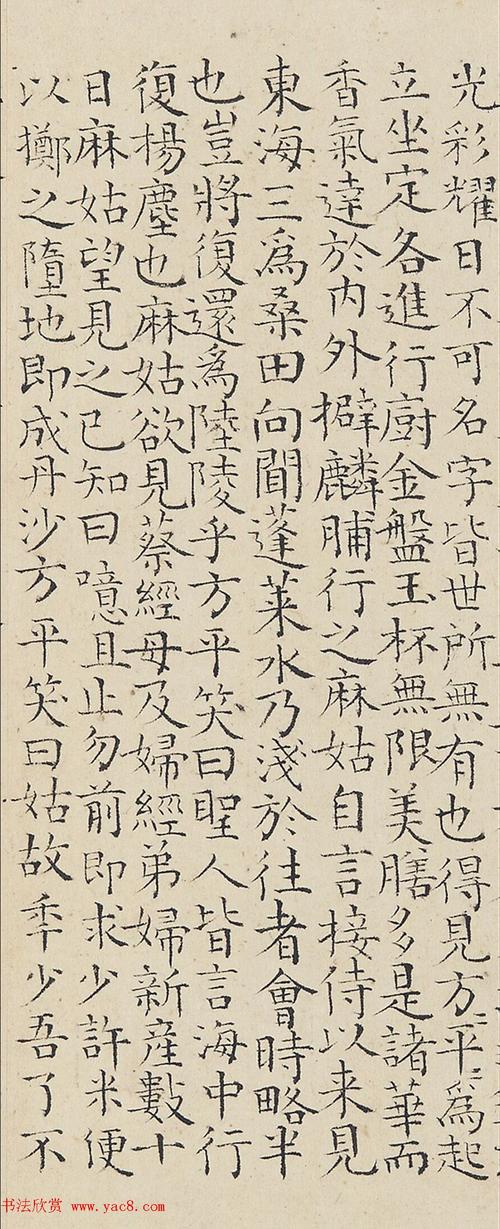 光彩耀日不可名字皆世所無有也得見方平=爲起
立坐定各進行厨金盤玉杯無限美膳多是諸華而
香氣達於内外擗麟脯行之麻姑自言接待以来見
東海三爲桑田向聞蓬莱水乃淺於往者會時略半
也豈將復還爲陸陵乎方平笑曰聖人皆言海中行
復楊塵也麻姑欲見蔡經母及婦經弟婦新産數十
日麻姑望見之已知曰噫且止勿前即求少許米便
以擲之墮地即成丹沙方平笑曰姑故秊少吾了不
书法欣赏 www.yac8.com